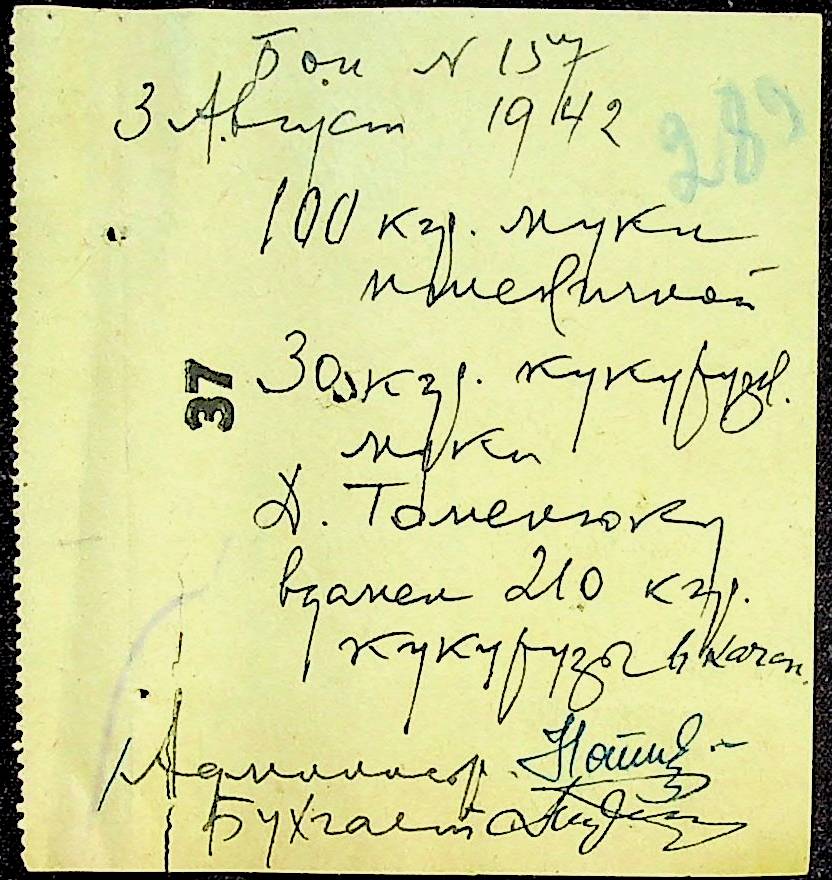 Бон N 157
3 Август 1942
289
100 кгр. муки
пшеничной
37
30 кгр. кукурузн.
муки
Д. Томенюку
взамен 210 кгр.
кукурузы в качан.
Администр.
Бухгалт